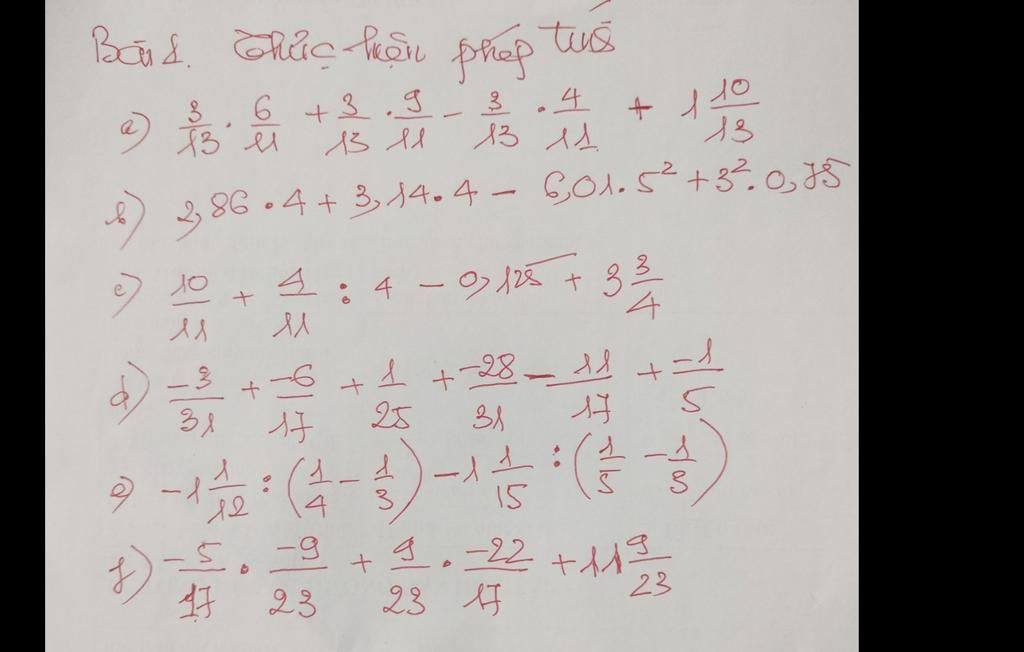 Bài 1. Thực hiện phép tính
a) 3/13 . 6/11 + 3/13 . 9/11 - 3/13 . 4/11 + 1 10/13
b) 2,86 . 4 + 3,14 . 4 - 6,01 . 5² + 3² . 0,75
c) 10/11 + 4/11 : 4 - 0,125 + 3 3/4
d) -3/31 + -6/17 + 1/25 + -28/31 - 11/17 + -1/5
e) -1 1/12 : (1/4 - 1/3) - 1 1/15 : (1/5 - 1/3)
f) -5/17 . -9/23 + 9/23 . -22/17 + 11 9/23